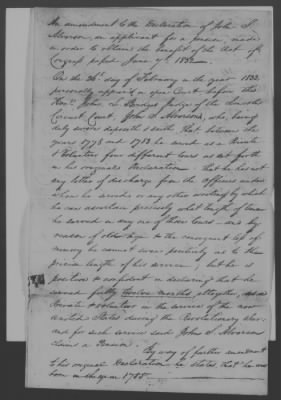 An amendment to the Declaration of John S.
an applicant for a pension, made
in order to obtain the benefit of the Act of
Congress passed June 7th 1832.
On the day of February in the year 1833
personally appeared in open Court before the
Honl. John Judge of the
Circuit Court, John S. who, being
duly sworn deposeth & saith that between the
years 1778 and 1783 he served as a Private
& Volunteer four different tours as set forth
in his original Declaration that he has not
any letter of discharge from the officers under
whom he served or any other writing by which
he can ascertain precisely what length of time
he served in any one of those tours and by
reason of old age & the consequent loss of
memory he cannot swear positively as to the
precise length of his service, but he is
positive & confident in declaring that he
served fully twelve months altogether, as a
Private & volunteer in the service of the
United States during the Revolutionary War
and for such service said John S.
claims a Pension.
By way of further amendment
to his original Declaration he states that he was
born in the year